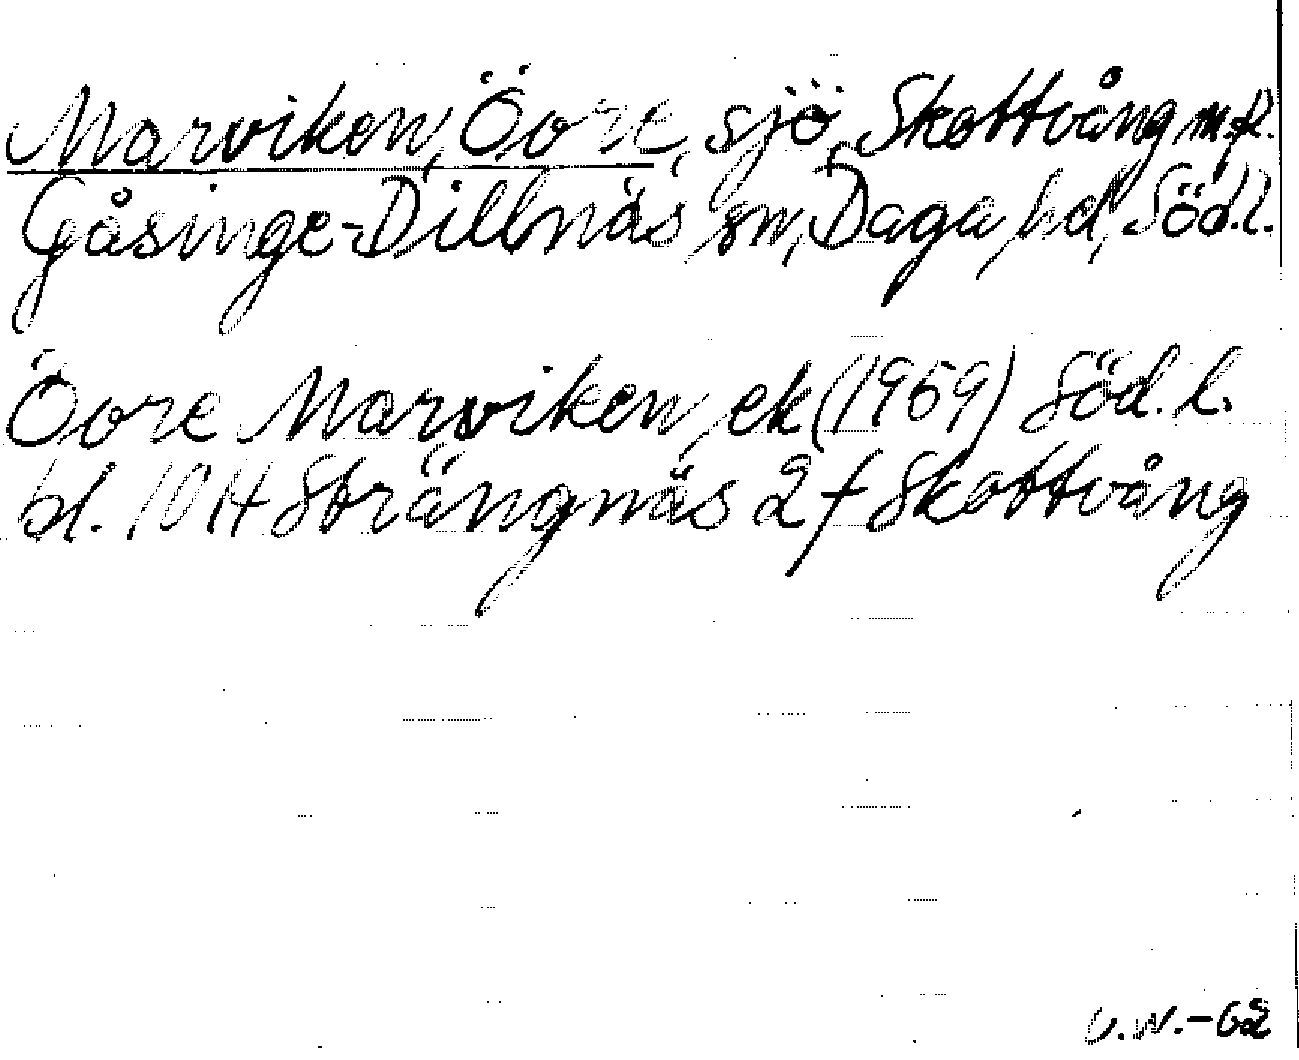 Marviken, Övre, sjö, Skottvång m.fl.
Gåsinge-Dillnäs sn, Daga hd, Söd.l.
Övre Marviken, ek (1969) Söd.l.
bl. 10 H Strängnäs 2 f Skottvång
U.W.-62